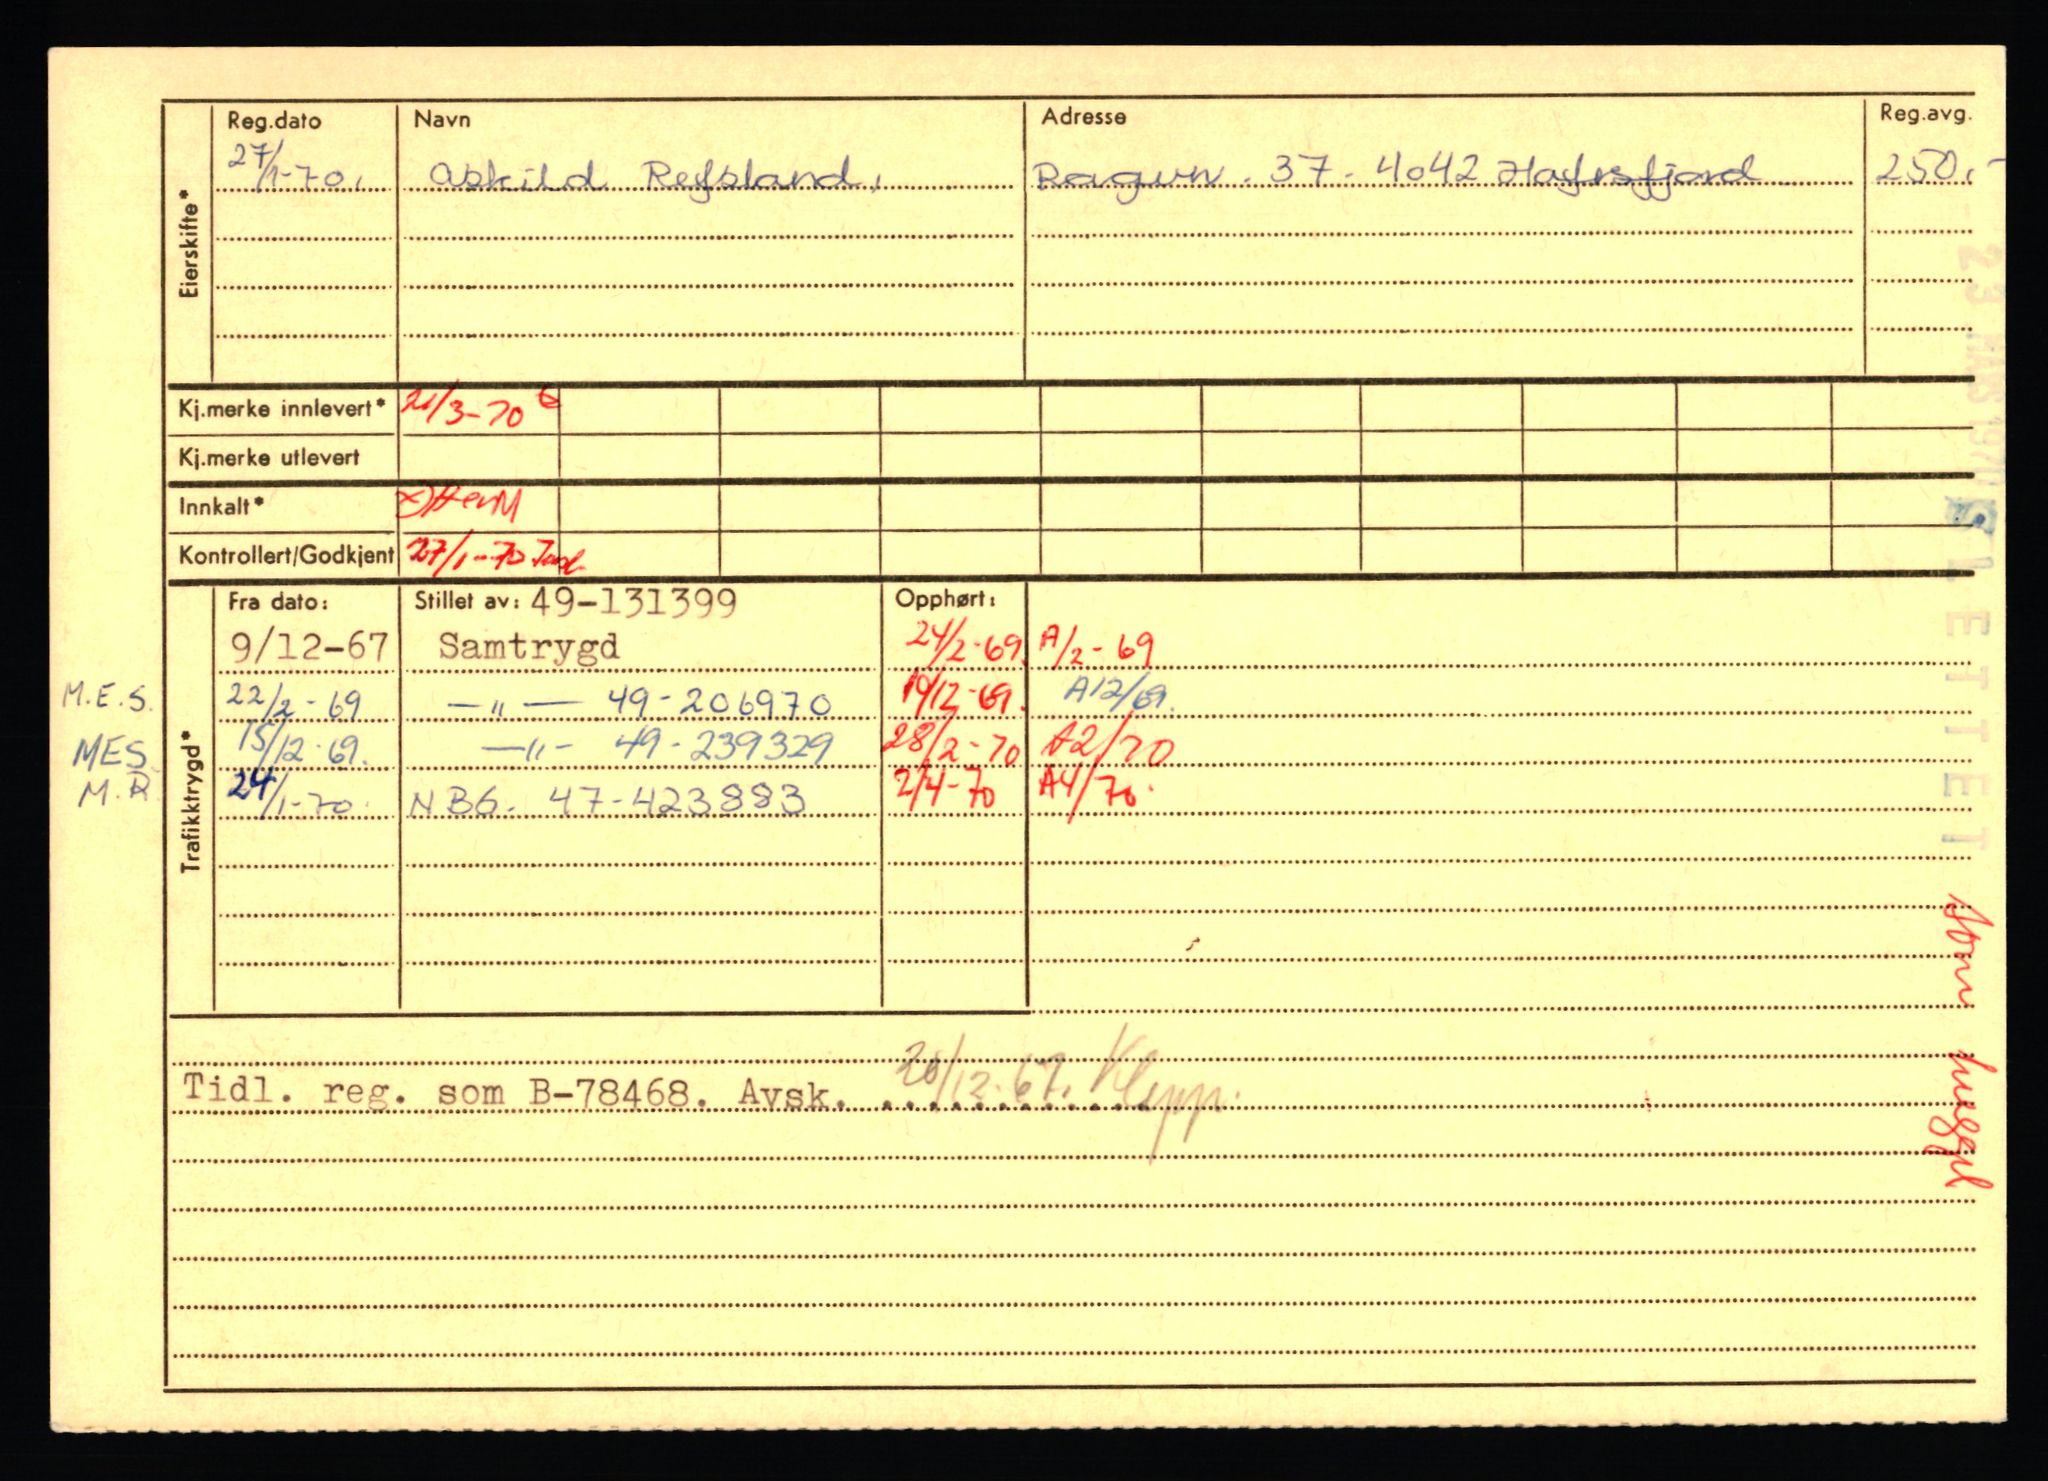 Reg.dato Navn Adresse Reg.avg.
27/1-70. Askild Refsland, 37 - 4042 Hafrsfjord 250,-
Eierskifte*
Kj.merke innlevert* 21/3-70
Kj.merke utlevert
Innkalt*
Kontrollert/Godkjent 27/1-70
Fra dato: Stillet av: 49-131399 Opphørt:
9/12-67 Samtrygd 24/2-69. A/2-69
M.E.S. 22/2-69 —"— 49-206970 19/12-69. A12/69.
MES. 15/12-69. —"— 49-239329 28/2-70 A2/70
M.R. 24/1-70. NBG. 47-423883 2/4-70 A4/70.
Trafikktrygd*
Tidl. reg. som B-78468. Avsk. 20/12-67. Klepp.
23 MARS 1970
SLETTET
Som hugget